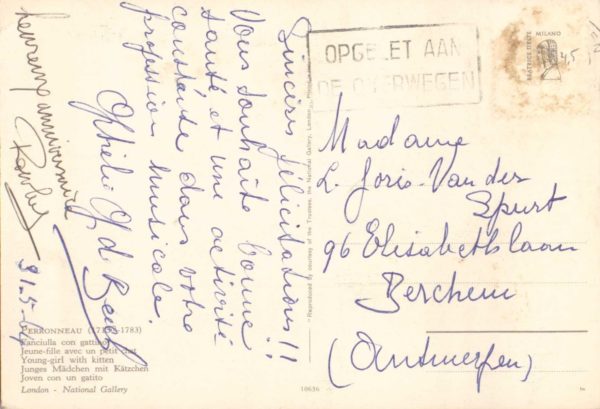 Sincères félicitations!!
Vous souhaite bonne
santé et une activité
constante dans votre
profession musicale.
heureux anniversaire
OPGELET AAN
DE OVERWEGEN
MILANO
Madame
L. Joris-Van der
Spurt
96 Elisabethlaan
Berchem
(Antwerpen)
"Reproduced by courtesy of the Trustees, the National Gallery, London."
PERRONNEAU
Fanciulla con gattino
Jeune-fille avec un petit chat
Young-girl with kitten
Junges Mädchen mit Kätzchen
Joven con un gatito
London - National Gallery
10636